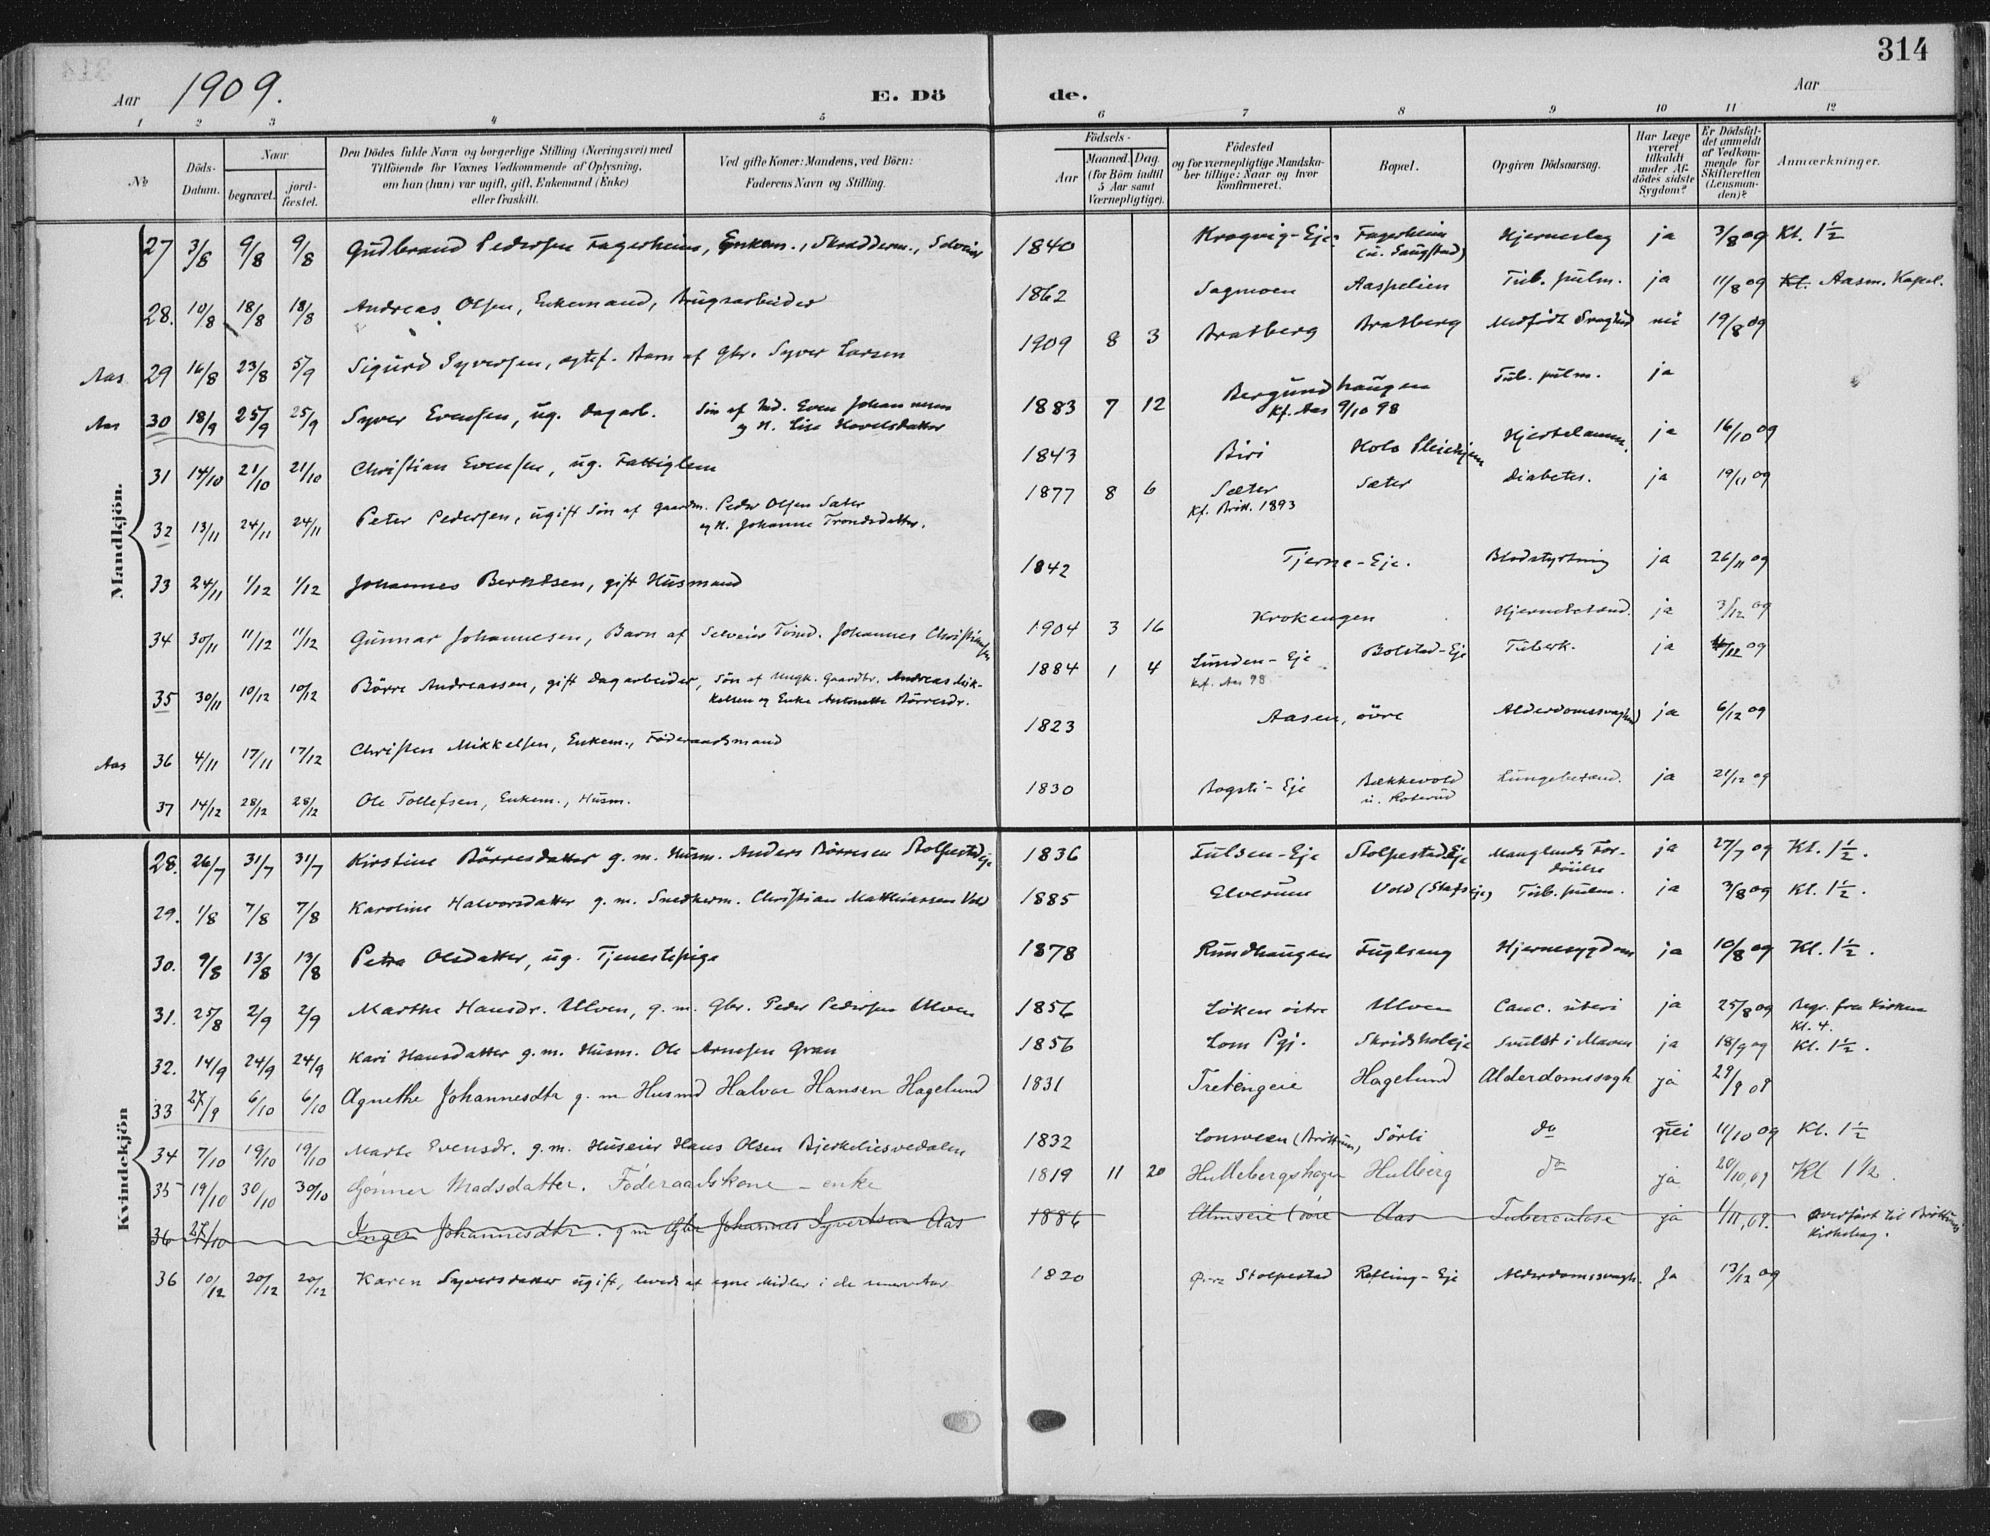 314
Aar 1909.
E. Dö de.
Aar
1 2 3 4 5 6 7 8 9 10 11 12
№
Döds-Datum.
Naar
begravet.
jord-fæstet.
Den Dödes fulde Navn og borgerlige Stilling (Næringsvei) med
Tilföiende for Voxnes Vedkommende af Oplysning,
om han (hun) var ugift, gift, Enkemand (Enke)
eller fraskilt.
Ved gifte Koner: Mandens, ved Börn:
Faderens Navn og Stilling.
Födsels-
Aar
Maaned. Dag.
(for Börn indtil
5 Aar samt
Værnepligtige).
Födested
og for værnepligtige Mandskaber tillige: Naar og hvor
konfirmeret.
Bopæl.
Opgiven Dödsaarsag.
Har Læge været tilkaldt under Afdödes sidste Sygdom?
Er Dödsfaldet anmeldt af Vedkommende for Skifteretten (Lensmanden)?
Anmærkninger.
Mandkjön.
27 3/8 9/8 9/8 Gudbrand Pedersen Fagerheim, Enkem., Skrædderm., Selveier 1840 Kragvig-Eje Fagerheim (u. Saugstad) Hjerneslag ja 3/8 09 Kl. 1½
28. 10/8 18/8 18/8 Andreas Olsen, Enkemand, Brugsarbeider 1862 Sagmoen Aaspelien Tub. pulm. ja 11/8 09 Kl. Aasm. Kapel.
Aas 29 16/8 23/8 5/9 Sigurd Syversen, ægtef. Barn af Gbr. Syver Larsen 1909 8 3 Bratberg Bratberg Medfödt Svaghed nei 19/8 09
Aas 30 18/9 25/9 25/9 Syver Evensen, ug. dagarb. Sön af Ind. Even Johannesen og H. Lise Hovelsdatter 1883 7 12 Bergundhaugen Kf. Aas 9/10 98 Tub. pulm. ja
31 14/10 21/10 21/10 Christian Evensen, ug. Fattiglem 1843 Biri Holo Pleiehjem Hjertelamm. ja 16/10 09
32 13/11 24/11 24/11 Peter Pedersen, ugift Sön af Gaardm. Peder Olsen Sæter og H. Johanne Trondsdatter. 1877 8 6 Sæter Kf. Brött. 1893 Sæter Diabetes. ja 19/11 09
33 24/11 1/12 1/12 Johannes Berntsen, gift Husmand 1842 Tjerne-Eje. Blodstyrtning ja 26/11 09
34 30/11 11/12 11/12 Gunnar Johannesen, Barn af Selveier Tömd. Johannes Christiansen 1904 3 16 Krokengen Hjernebetænd. ja 3/12 09
35 30/11 10/12 10/12 Börre Andreassen, gift dagarbeider, Sön af Ungk. Gaardbr. Andreas Mikkelsen og Enke Antonette Börresdr. 1884 1 4 Lunden-Eje Kf. Aas 98 Bolstad-Eje Tuberk. ja 4/12 09
Aas 36 4/11 17/11 17/12 Christen Mikkelsen, Enkem., Föderaadsmand 1823 Aasen, övre Alderdomssvaghed ja 6/12 09
37 14/12 28/12 28/12 Ole Tollefsen, Enkem., Husm. 1830 Bogsti-Eje Bækkevold u. Roterud Lungebetænd. ja 21/12 09
Kvindekjön
28. 26/7 31/7 31/7 Kirstine Börresdatter g. m. Husm. Anders Börresen Stolpestadeje 1836 Fulsen-Eje Stolpestad Eje Manglende Fordöielse ja 27/7 09 Kl. 1½.
29. 1/8 7/8 7/8 Karoline Halvorsdatter g. m. Snedkerm. Christian Matthiassen Vold 1885 Elverum Vold (Stafseje) Tub. pulm. ja 3/8 09 Kl. 1½.
30. 9/8 13/8 13/8 Petra Olsdatter, ug. Tjenestepige 1878 Rundhaugen Fuglseng Hjernesygdom ja 10/8 09 Kl. 1½.
31. 25/8 2/9 2/9 Marthe Hansdr. Ulven, g. m. Gbr. Peder Pedersen Ulven 1856 Löken östre Ulven Canc. uteri ja 25/8 09 Begr. fra Kirken Kl. 4.
32. 14/9 24/9 24/9 Kari Hansdatter g. m. Husm. Ole Arnesen Gran 1856 Lom Pgj. Skridsholeje Svulst i Maven ja 18/9 09 Kl. 1½.
33 27/9 6/10 6/10 Agnethe Johannesdtr g. m Husmd Halvor Hansen Hagelund 1831 Tretengeie Hagelund Alderdomssvgh ja 29/9 09
34 7/10 19/10 19/10 Marte Evensdr. g. m. Huseier Hans Olsen Bjerkeliesvedalen 1832 Lonsveen (Bröttum) Sörli do nei 11/10 09 Kl. 1½
35 19/10 30/10 30/10 Gönner Madsdatter. Föderaadskone - enke 1819 11 20 Hullebergshagen Hulberg do ja 20/10.09 Kl 1½.
36 27/10 Inger Johannesdtr. g m Gbr Johannes Syvertsen Aas 1886 Almseie (övre Aas Tuberculose ja 1/11.09. overfört til Bröttums Kirkebog.
36 10/12 20/12 20/12 Karen Syversdatter ugift, levede af egne Midler i de senere Aar 1820 Övre Stolpestad Rofling-Eje Alderdomssvagh. Ja 13/12 09